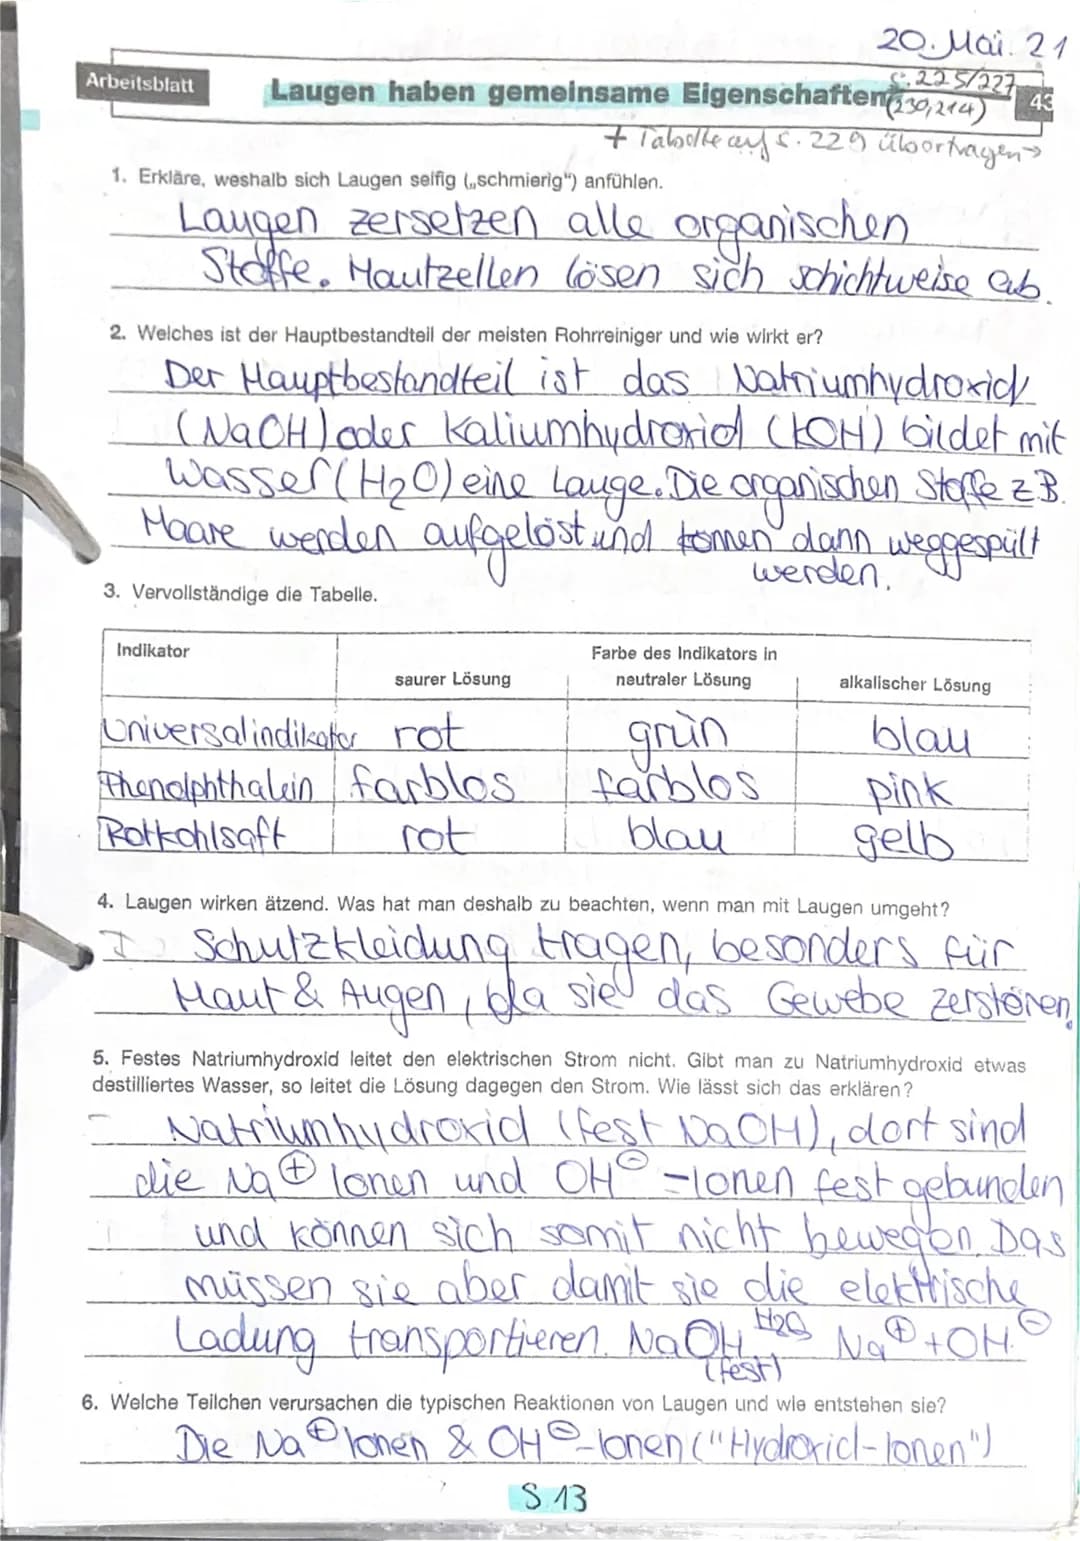 20. Mai. 21
Arbeitsblatt
Laugen haben gemeinsame Eigenschaften
S. 225/227
(230,214)
43
+ Tabelle auf S. 229 übertragen →
1. Erkläre, weshalb sich Laugen seifig („schmierig“) anfühlen.
Laugen zersetzen alle organischen
Stoffe. Hautzellen lösen sich schichtweise ab.
2. Welches ist der Hauptbestandteil der meisten Rohrreiniger und wie wirkt er?
Der Hauptbestandteil ist das Natriumhydroxid
(NaOH) oder Kaliumhydroxid (KOH) bildet mit
Wasser (H₂O) eine Lauge. Die organischen Stoffe z.B.
Haare werden aufgelöst und können dann weggespült
werden.
3. Vervollständige die Tabelle.
Indikator
Farbe des Indikators in
saurer Lösung neutraler Lösung alkalischer Lösung
Universalindikator rot grün blau
Phenolphthalein farblos farblos pink
Rotkohlsaft rot blau gelb
4. Laugen wirken ätzend. Was hat man deshalb zu beachten, wenn man mit Laugen umgeht?
Schutzkleidung tragen, besonders für
Haut & Augen, da sie das Gewebe zerstören.
5. Festes Natriumhydroxid leitet den elektrischen Strom nicht. Gibt man zu Natriumhydroxid etwas
destilliertes Wasser, so leitet die Lösung dagegen den Strom. Wie lässt sich das erklären?
Natriumhydroxid (fest NaOH), dort sind
die Na⊕ Ionen und OH⊖-Ionen fest gebunden
und können sich somit nicht bewegen. Das
müssen sie aber damit sie die elektrische
Ladung transportieren. NaOH H₂O Na⊕ + OH⊖
(fest)
6. Welche Teilchen verursachen die typischen Reaktionen von Laugen und wie entstehen sie?
Die Na⊕ Ionen & OH⊖-Ionen ("Hydroxid-Ionen")
S 13